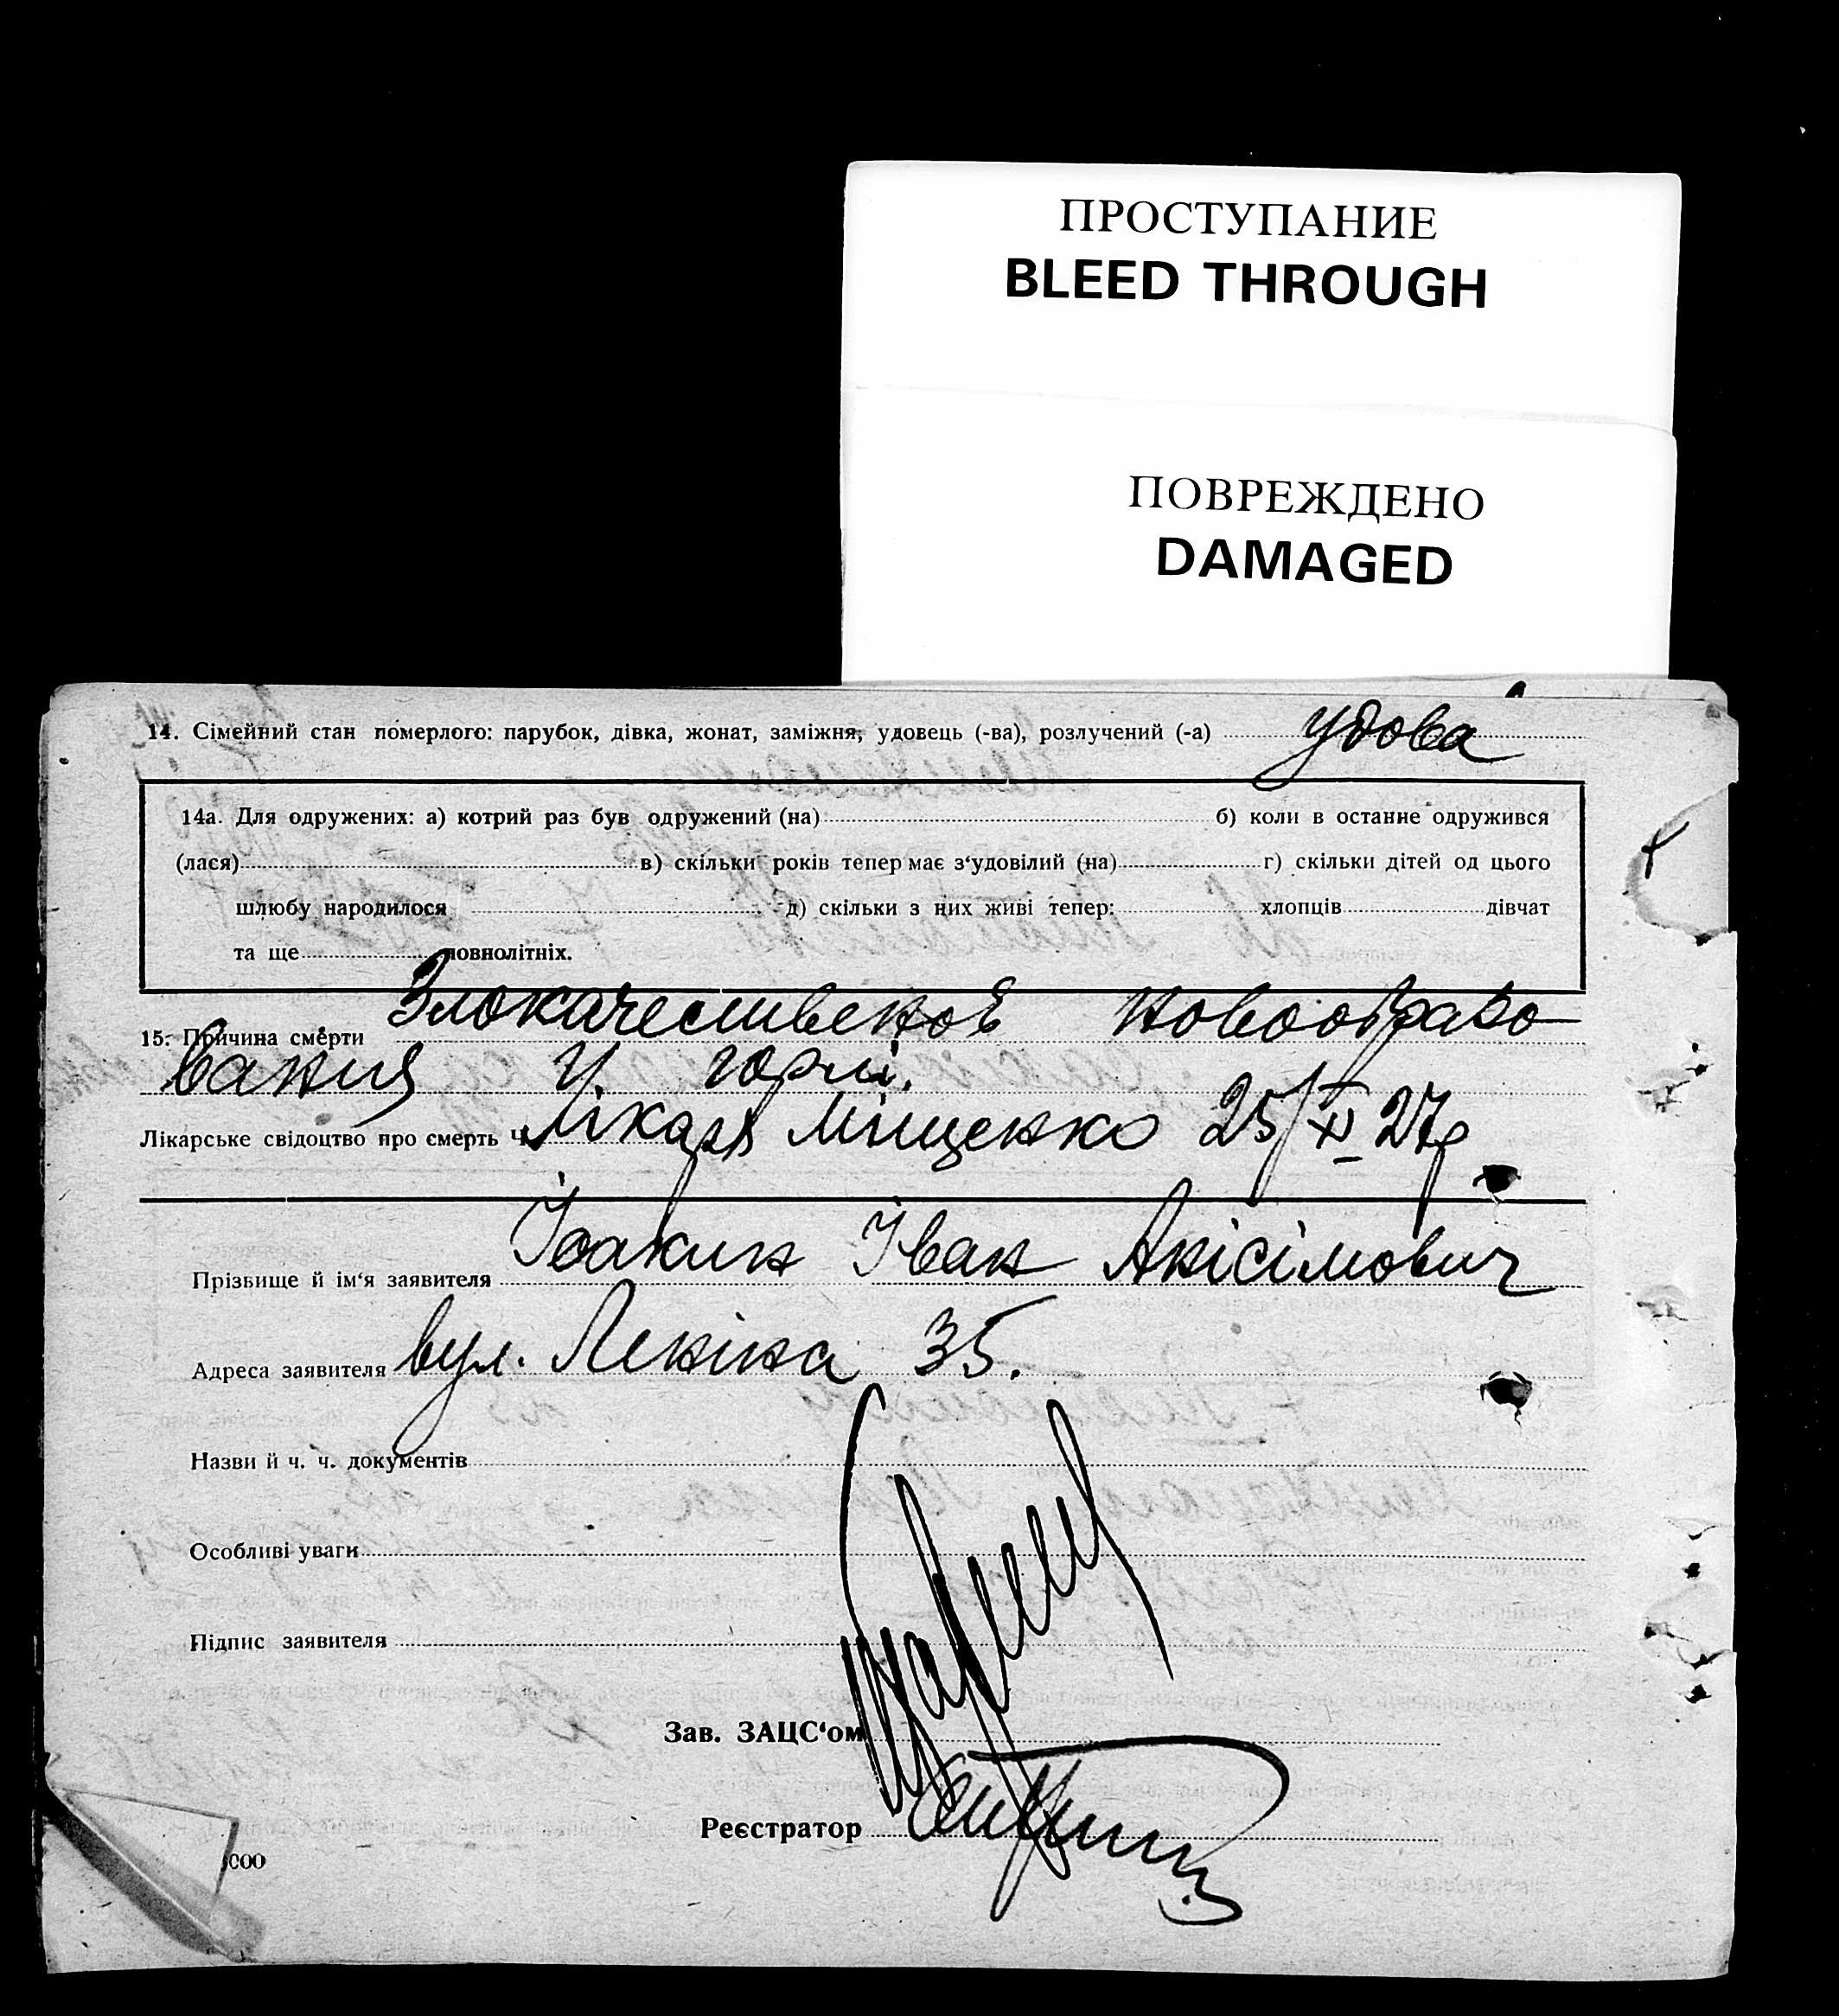 ПРОСТУПАНИЕ
BLEED THROUGH
ПОВРЕЖДЕНО
DAMAGED
14. Сімейний стан померлого: парубок, дівка, жонат, заміжня, удовець (-ва), розлучений (-а) удова
14а. Для одружених: а) котрий раз був одружений (на) б) коли в останнє одружився
(лася) в) скільки років тепер має з'удовілий (на) г) скільки дітей од цього
шлюбу народилося д) скільки з них живі тепер: хлопців дівчат
та ще повнолітніх.
15. Причина смерти Злокачественое новообразо
вания у горлі.
Лікарське свідоцтво про смерть Ч. Лікаря Міщенко 25/XI 27р
Прізвище й ім'я заявителя Ісакин Іван Анісімович
Адреса заявителя вул. Леніна 35.
Назви й ч. ч. документів
Особливі уваги
Підпис заявителя
Зав. ЗАЦС'ом
Реєстратор
000